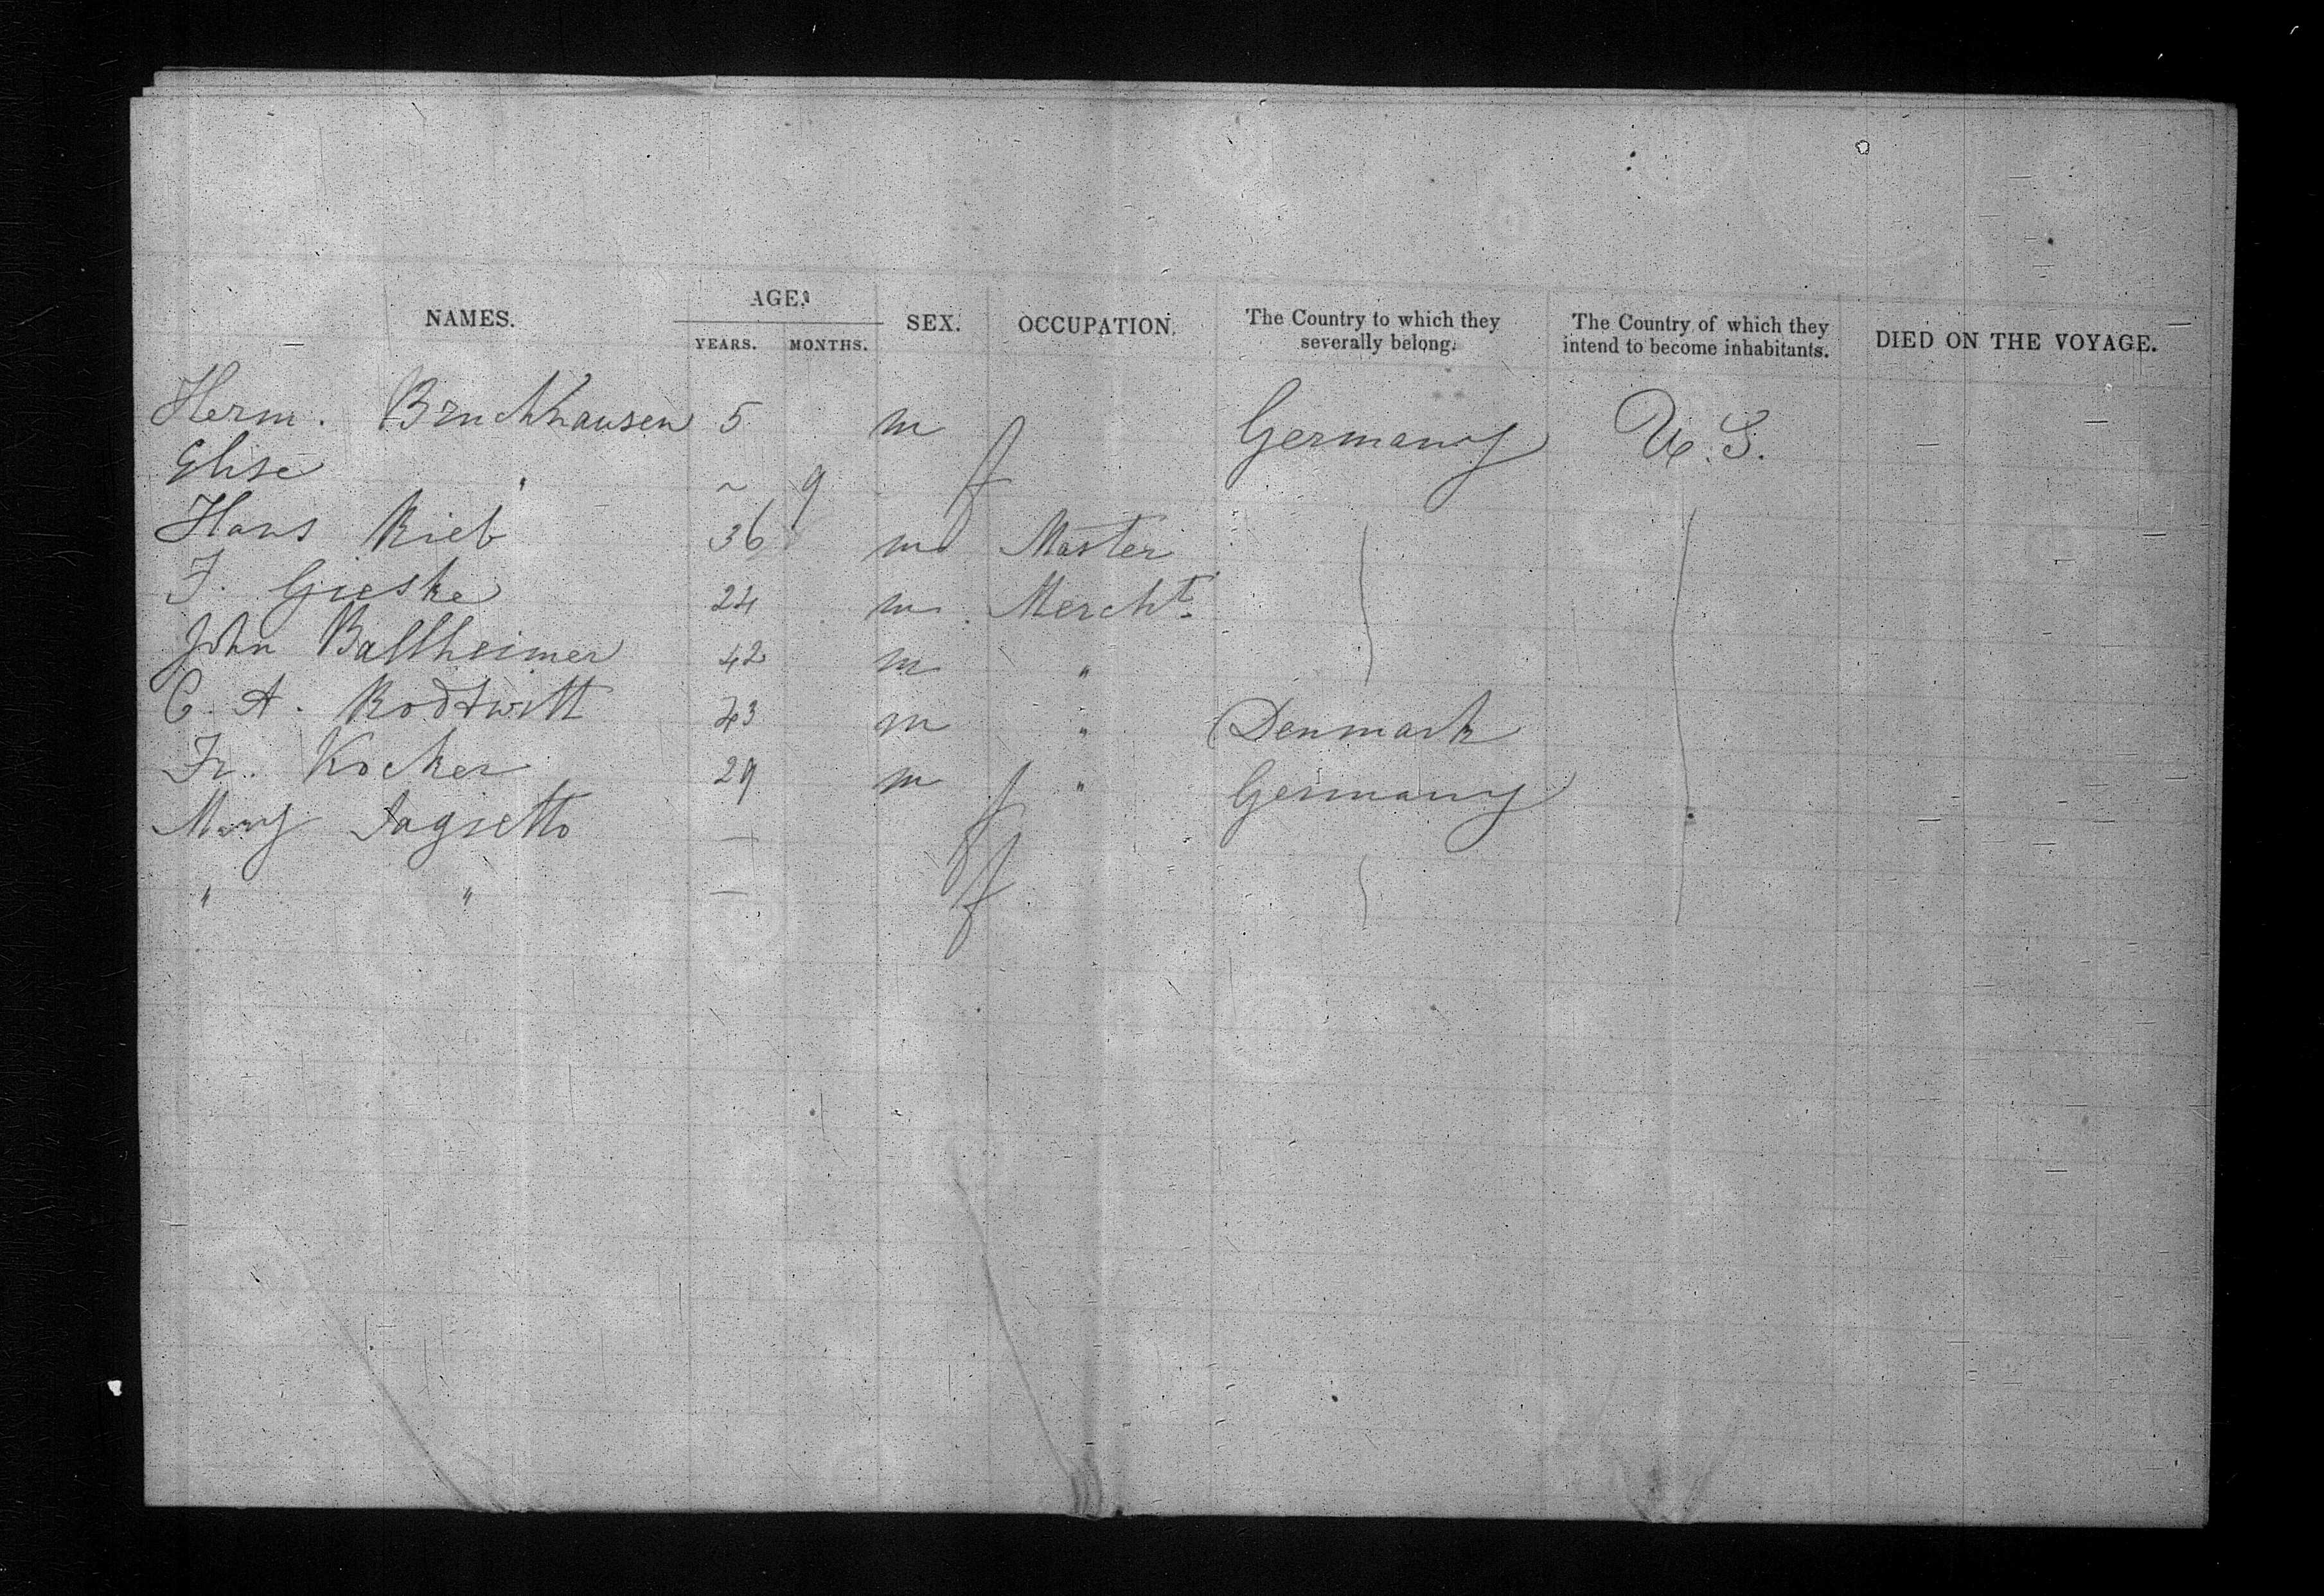 NAMES. AGE. SEX. OCCUPATION. The Country to which they severally belong. The Country of which they intend to become inhabitants. DIED ON THE VOYAGE.
YEARS. MONTHS.
Herm. Bruckhausen 5 m Germany U.S.
Elise " ~ 9 f
Hans Rieb 36 m Master
F. Gieske 24 m Mercht
John Ballheimer 42 m "
C. A. Rodtwitt 43 m " Denmark
Fr. Kocher 29 m " Germany
Mary Jagietto — f
" " — f